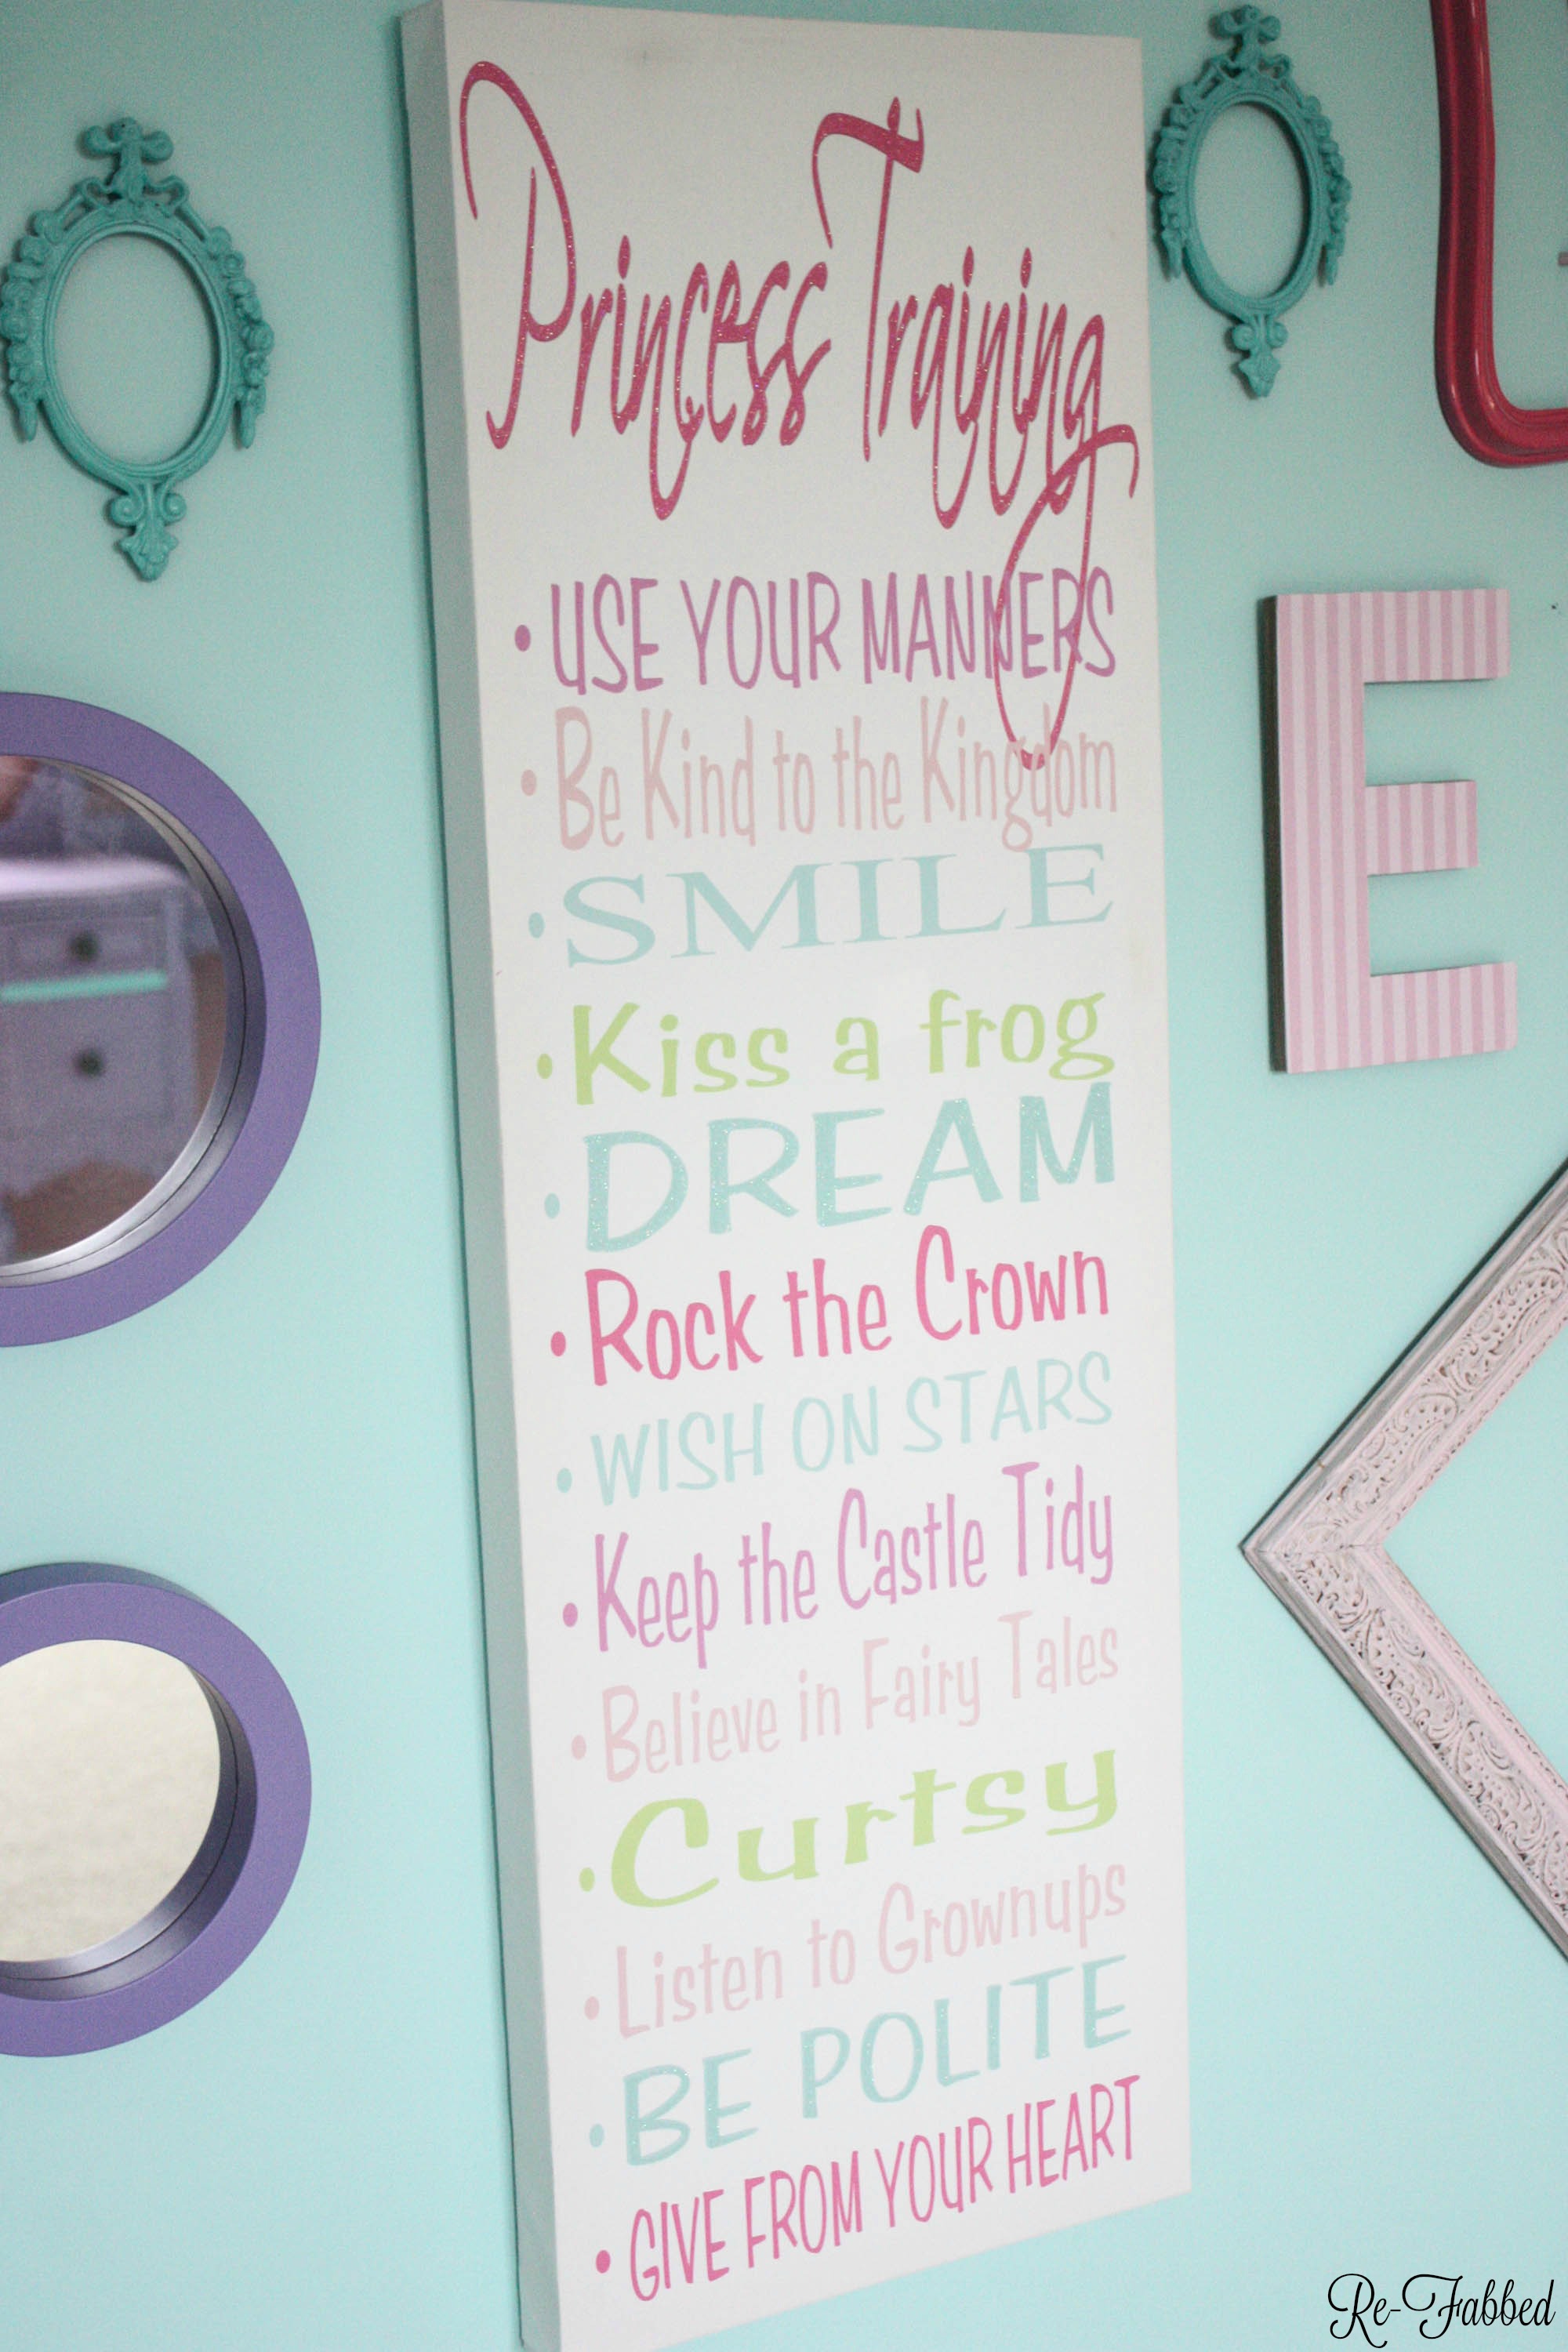 Princess Training
• USE YOUR MANNERS
• Be Kind to the Kingdom
• SMILE
• Kiss a frog
• DREAM
• Rock the Crown
• WISH ON STARS
• Keep the Castle Tidy
• Believe in Fairy Tales
• Curtsy
• Listen to Grownups
• BE POLITE
• GIVE FROM YOUR HEART
E
Re-Fabbed